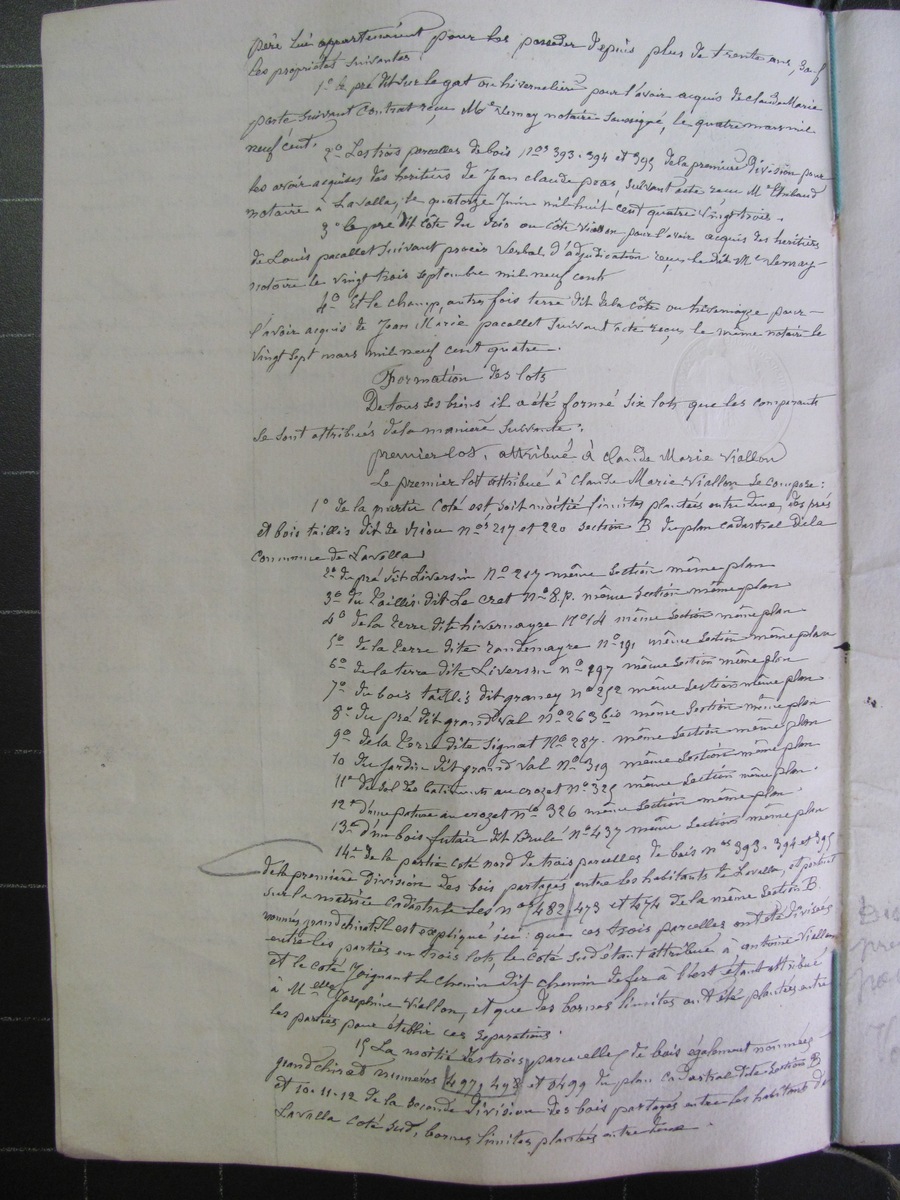 père lui appartenaient pour les posséder depuis plus de trente ans, sauf
les propriétés suivantes,
1º le pré dit sur le gat ou hivernelière pour l'avoir acquis de claude Marie
suivant Contrat reçu, Me Lernay notaire soussigné, le quatre mars mil
neuf cent.
2º Les trois parcelles de bois Nos 393-394 et 395 de la première Division pour
les avoir acquises des heritiers de Jean claude pras, suivant acte reçu Me Thibaud
notaire à Lavalla, le quatorze Juin mil huit cent quatre vingt trois.
3º le pré dit côte du ou côte Viallon pour l'avoir acquis des heritiers
de Louis pacallet suivant procès Verbal d'adjudication reçu le dit Me Lernay
notaire le vingt trois septembre mil neuf cent
4º Et le champ, autres fois terre dit de la côte ou pour
l'avoir acquis de Jean Marie pacallet suivant acte reçu le même notaire le
vingt sept mars mil neuf cent quatre.
Formation des lots
De tous ses biens il a été formé six lots que les comparants
se sont attribués de la manière suivante:
premier lot, attribué à claude Marie Viallon
Le premier lot attribué à Claude Marie Viallon se compose:
1º de la partie coté est soit moitié limites plantées entre deux, des prés
et bois taillis dit de nos 217 et 220 section B du plan cadastral de la
Commune de Lavalla
2º du pré dit Liversin Nº 217 même Section même plan
3º du Taillis dit Le cret Nº 8.p. même Section même plan
4º de la terre dite hivernayre Nº 14 même Section même plan
5º de la terre dite Nº 191 même Section même plan
6º de la terre dite Liversin nº 197 même Section même plan
7º du bois taillis dit graney nº 252 même Section même plan
8º du pré dit grand Val Nº 263 bis même Section même plan
9º de la terre dite Signat Nº 287. même Section même plan
10 du Jardin dit grand Val Nº 319 même Section même plan
11º du Sol des batiments au crozet Nº 325 même Section même plan.
12º d'une pature au crozet nº 326 même Section même plan.
13º d'un bois futaie dit Brulé Nº 437 même Section même plan
14º de la partie coté nord de trois parcelles de bois nos 393-394 et 395
de la première Division des bois partagés entre les habitants de Lavalla, et portent
sur la matrice Cadastrale les nos 482, 473 et 474 de la même Section B.
nommés grand chirat. Il est expliqué ici: que ces trois parcelles ont été divisées
entre les parties en trois lots, le coté Sud étant attribué à antoine Viallon
et le coté Joignant le chemin dit chemin de fer à l'est étant attribué
à Melle Joséphine Viallon, et que des bornes limites ont été plantées entre
les parties pour établir ces séparations.
15 La moitié des trois parcelles de bois également nommées
grand chirat numéros 497, 498 et 499 du plan cadastral dite Section B
et 10-11-12 de la Seconde Division des bois partagés entre les habitants de
Lavalla coté Sud, bornes limites plantées entre deux.